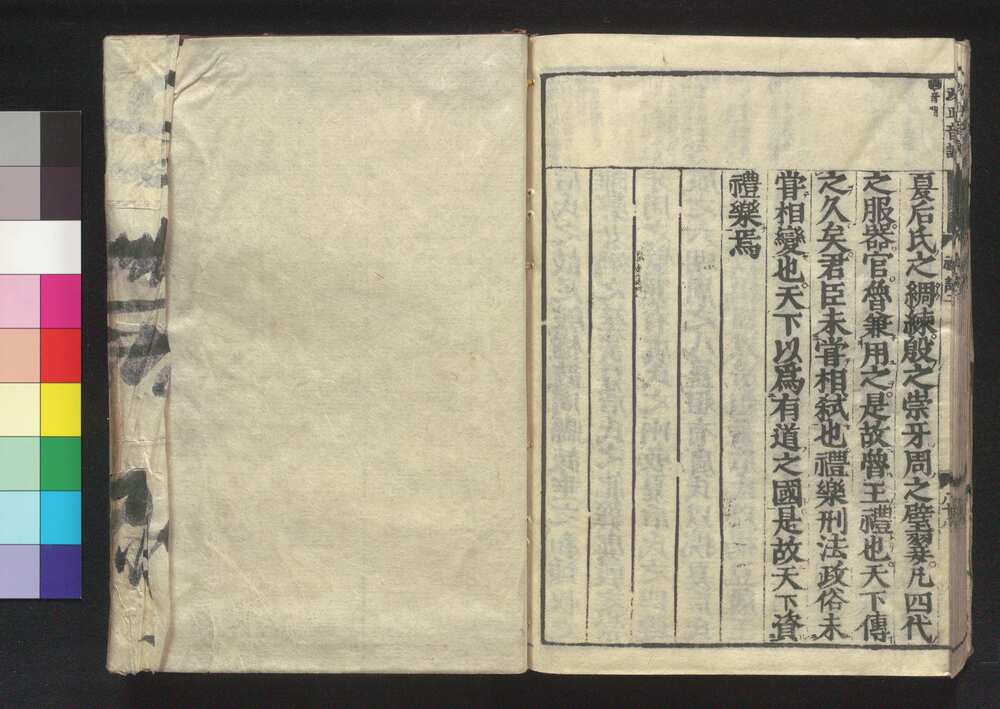 夏后氏之綢練殷之崇牙周之璧翣凡四代
之服器官魯兼用之是故魯王禮也天下傳
之久矣君臣未甞相弑也禮樂刑法政俗未
甞相變也天下以爲有道之國是故天下資
禮樂焉